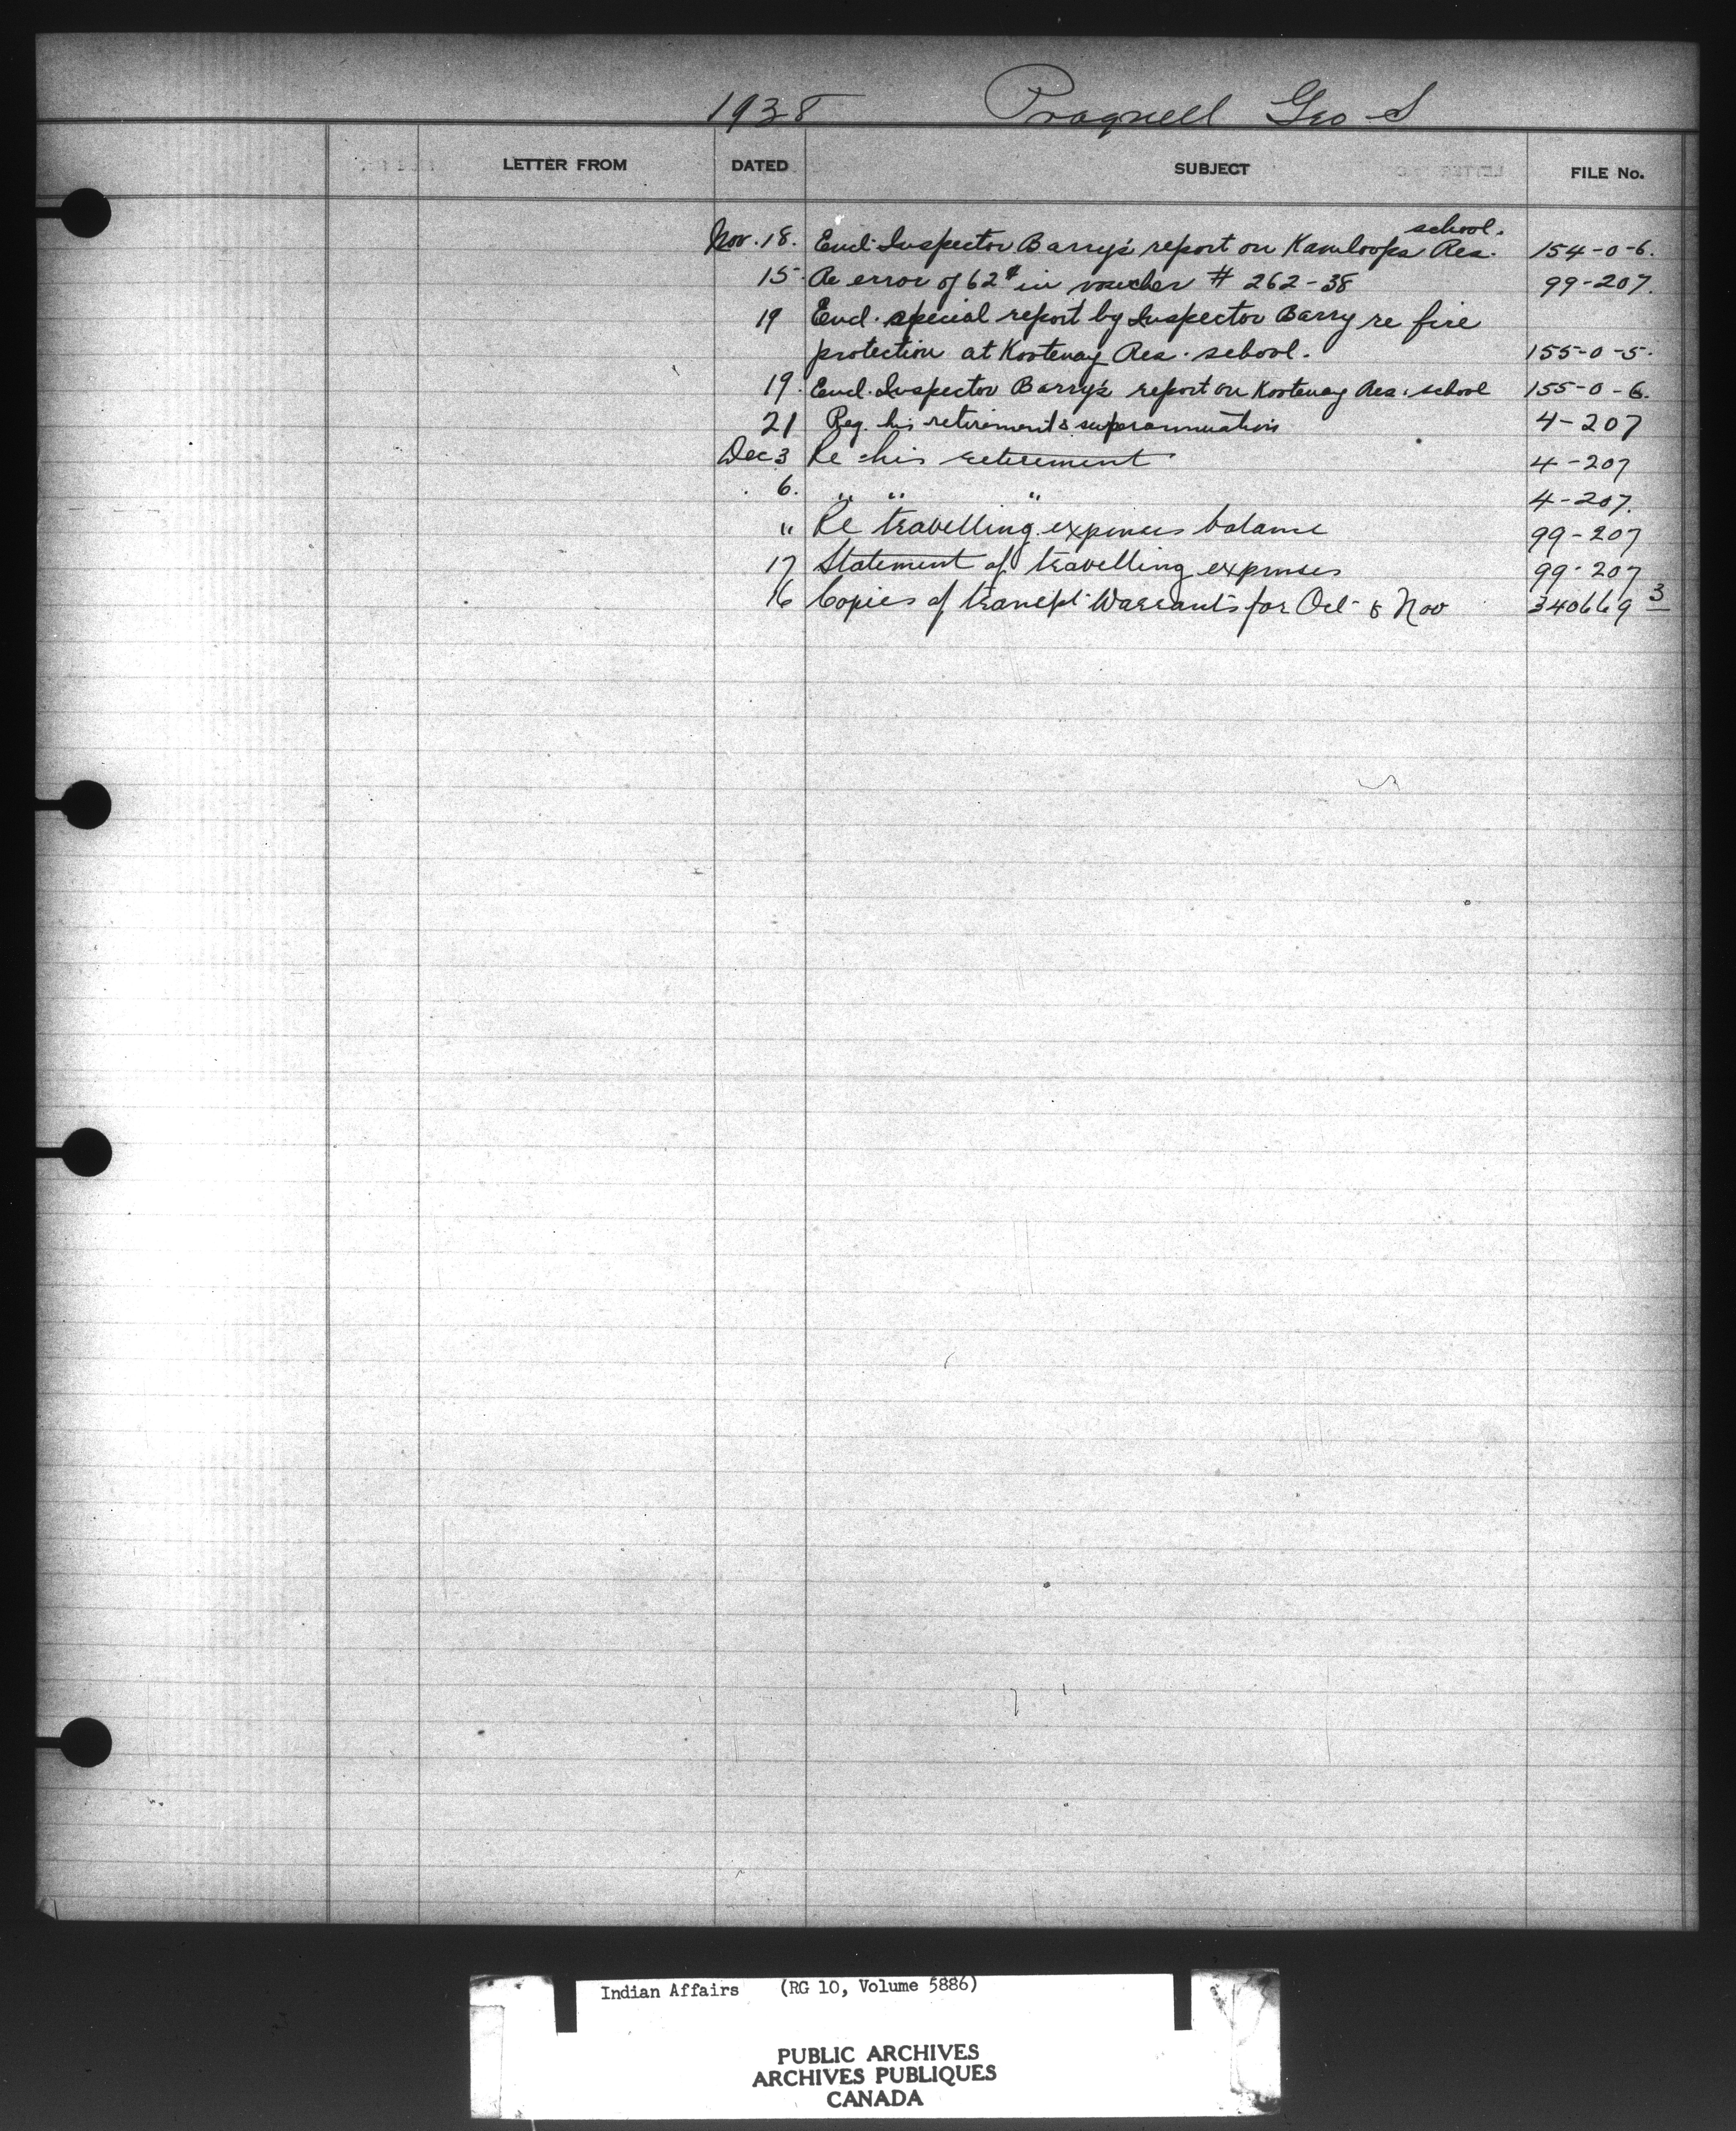 1938 Pragnell Geo S
LETTER FROM DATED SUBJECT FILE No.
school.
Nov. 18. Encl. Inspector Barry's report on Kamloops Res. 154-0-6.
15. Re error of 62¢ in voucher # 262-38 99-207.
19 Encl. special report by Inspector Barry re fire
protection at Kootenay Res. school. 155-0-5.
19. Encl. Inspector Barry's report on Kootenay Res. school 155-0-6.
21 Reg. his retirement & superannuation 4-207
Dec 3 Re his retirement 4-207
6. " " " 4-207.
" Re travelling expenses balance 99-207
17 Statement of travelling expenses 99-207
16 Copies of transpt Warrants for Oct & Nov 340669 3
Indian Affairs (RG 10, Volume 5886)
PUBLIC ARCHIVES
ARCHIVES PUBLIQUES
CANADA